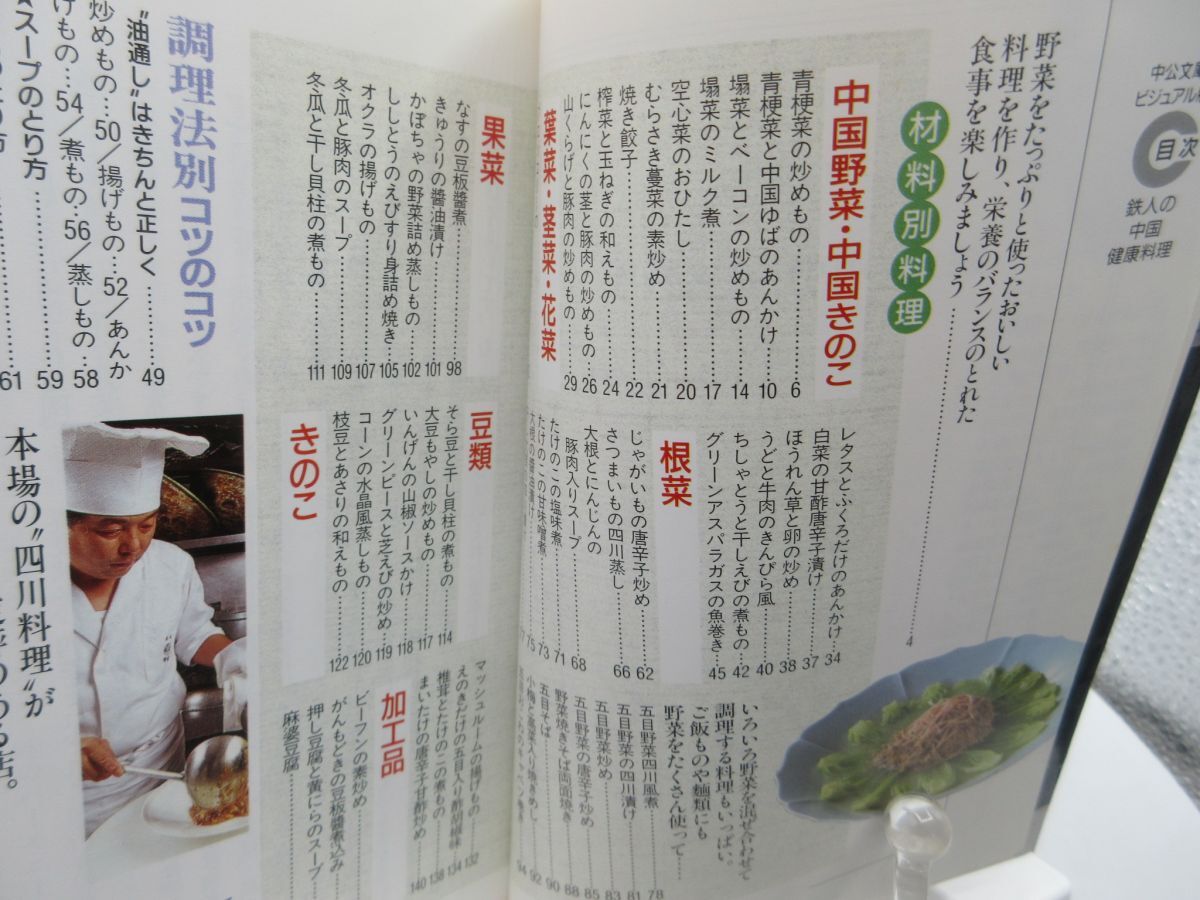 中公文庫
ビジュアル
目次
鉄人の
中国
健康料理
野菜をたっぷりと使ったおいしい
料理を作り、栄養のバランスのとれた
食事を楽しみましょう……4
材料別料理
中国野菜・中国きのこ
青梗菜の炒めもの……6
青梗菜と中国ゆばのあんかけ……10
塌菜とベーコンの炒めもの……14
塌菜のミルク煮……17
空心菜のおひたし……20
むらさき蔓菜の素炒め……21
焼き餃子……22
榨菜と玉ねぎの和えもの……24
にんにくの茎と豚肉の炒めもの……26
山くらげと豚肉の炒めもの……29
葉菜・茎菜・花菜
レタスとふくろだけのあんかけ……34
白菜の甘酢唐辛子漬け……37
ほうれん草と卵の炒め……38
うどと牛肉のきんぴら風……40
ちしゃとうと干しえびの煮もの……42
グリーンアスパラガスの魚巻き……45
根菜
じゃがいもの唐辛子炒め……62
さつまいもの四川蒸し……66
大根とにんじんの
豚肉入りスープ……68
たけのこの塩味煮……71
たけのこの甘味噌煮……73
大根の醬油漬け……75
いろいろ野菜を混ぜ合わせて
調理する料理も、いっぱい。
ご飯ものや麺類にも
野菜をたくさん使って……
五目野菜四川風煮……78
五目野菜の四川漬け……81
五目野菜炒め……83
五目野菜の唐辛子炒め……85
野菜焼きそば両面焼き……88
五目そば……90
92
94
果菜
なすの豆板醬煮……98
きゅうりの醬油漬け……101
かぼちゃの野菜詰め蒸しもの……102
ししとうのえびすり身詰め焼き……105
オクラの揚げもの……107
冬瓜と豚肉のスープ……109
冬瓜と干し貝柱の煮もの……111
豆類
そら豆と干し貝柱の煮もの……114
大豆もやしの炒めもの……117
いんげんの山椒ソースかけ……118
グリーンピースと芝えびの炒め……119
コーンの水晶風蒸しもの……120
枝豆とあさりの和えもの……122
きのこ
マッシュルームの揚げもの……132
えのきだけの五目入り酢胡椒味……134
椎茸とたけのこの煮もの……138
まいたけの唐辛子甘酢炒め……140
加工品
ビーフンの素炒め
がんもどきの豆板醬煮込み
押し豆腐と黄にらのスープ
麻婆豆腐
調理法別コツのコツ
“油通し”はきちんと正しく……49
炒めもの…50／揚げもの…52／あんか
けもの…54／煮もの…56／蒸しもの…58
★スープのとり方……59
61
本場の“四川料理”が